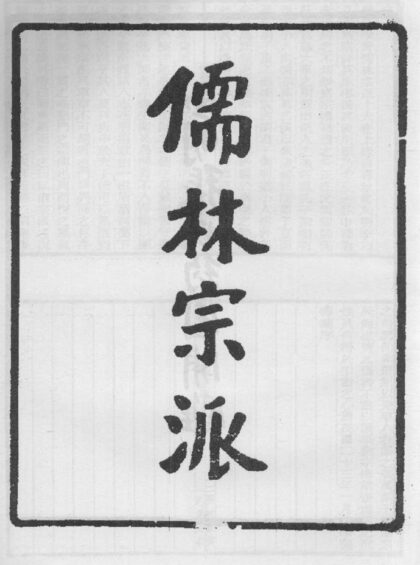 儒林宗派